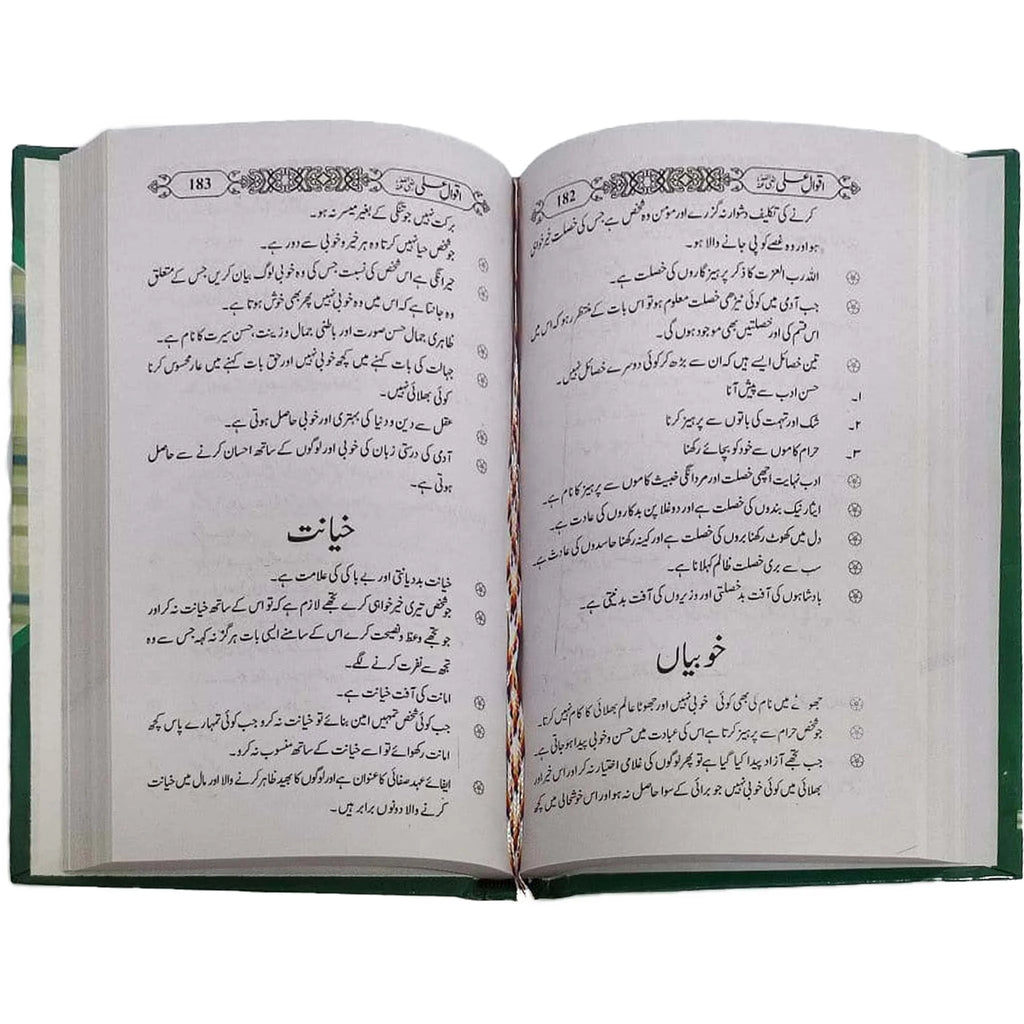 اقوال علی 182
کرنے کی تکلیف دشوار نہ گزرے اور مؤمن وہ شخص ہے جس کی خصلت خیر خواہی
ہو اور وہ غصے کو پی جانے والا ہو۔
اللہ رب العزت کا ذکر پرہیز گاروں کی خصلت ہے۔
جب آدمی میں کوئی ٹیڑھی خصلت معلوم ہو تو اس بات کے منتظر رہو کہ اس میں
اس قسم کی اور خصلتیں بھی موجود ہوں گی۔
تین خصائل ایسے ہیں کہ ان سے بڑھ کر کوئی دوسرے خصائل نہیں۔
۱۔ حسن ادب سے پیش آنا
۲۔ شک اور تہمت کی باتوں سے پرہیز کرنا
۳۔ حرام کاموں سے خود کو بچائے رکھنا
ادب نہایت اچھی خصلت اور مردانگی خبیث کاموں سے پرہیز کا نام ہے۔
ایثار نیک بندوں کی خصلت ہے اور دوغلا پن بدکاروں کی عادت ہے۔
دل میں کھوٹ رکھنا بروں کی خصلت ہے اور کینہ رکھنا حاسدوں کی عادت ہے۔
سب سے بری خصلت ظالم کہلانا ہے۔
بادشاہوں کی آفت بدخصلتی اور وزیروں کی آفت بدنیتی ہے۔
خوبیاں
میں نام کی بھی کوئی خوبی نہیں اور جھوٹا عالم بھلائی کا کام نہیں کرتا۔
جو شخص حرام سے پرہیز کرتا ہے اس کی عبادت میں حسن و خوبی پیدا ہو جاتی ہے۔
جب تجھے آزاد پیدا کیا گیا ہے تو پھر لوگوں کی غلامی اختیار نہ کر اور اس خیر اور
بھلائی میں کوئی خوبی نہیں جو برائی کے سوا حاصل نہ ہو اور اس خوشحالی میں کچھ
اقوال علی 183
برکت نہیں جو تنگی کے بغیر میسر نہ ہو۔
جو شخص حیا نہیں کرتا وہ ہر خیر و خوبی سے دور ہے۔
حیرانگی ہے اس شخص کی نسبت جس کی وہ خوبی لوگ بیان کریں جس کے متعلق
وہ جانتا ہے کہ اس میں وہ خوبی نہیں پھر بھی خوش ہوتا ہے۔
ظاہری جمال حسن صورت اور باطنی جمال و زینت، حسن سیرت کا نام ہے۔
جہالت کی بات کہنے میں کچھ خوبی نہیں اور حق بات کہنے میں عار محسوس کرنا
کوئی بھلائی نہیں۔
عقل سے دین و دنیا کی بہتری اور خوبی حاصل ہوتی ہے۔
آدمی کی درستی زبان کی خوبی اور لوگوں کے ساتھ احسان کرنے سے حاصل
ہوتی ہے۔
خیانت
خیانت بددیانتی اور بے باکی کی علامت ہے۔
جو شخص تیری خیر خواہی کرے تجھے لازم ہے کہ تو اس کے ساتھ خیانت نہ کر اور
جو تجھے وعظ و نصیحت کرے اس کے سامنے ایسی بات ہرگز نہ کہہ جس سے وہ
تجھ سے نفرت کرنے لگے۔
امانت کی آفت خیانت ہے۔
جب کوئی شخص تمہیں امین بنائے تو خیانت نہ کرو جب کوئی تمہارے پاس کچھ
امانت رکھوائے تو اسے خیانت کے ساتھ منسوب نہ کرو۔
ایفائے عہد صفائی کا عنوان ہے اور لوگوں کا بھید ظاہر کرنے والا اور مال میں خیانت
کرنے والا دونوں برابر ہیں۔